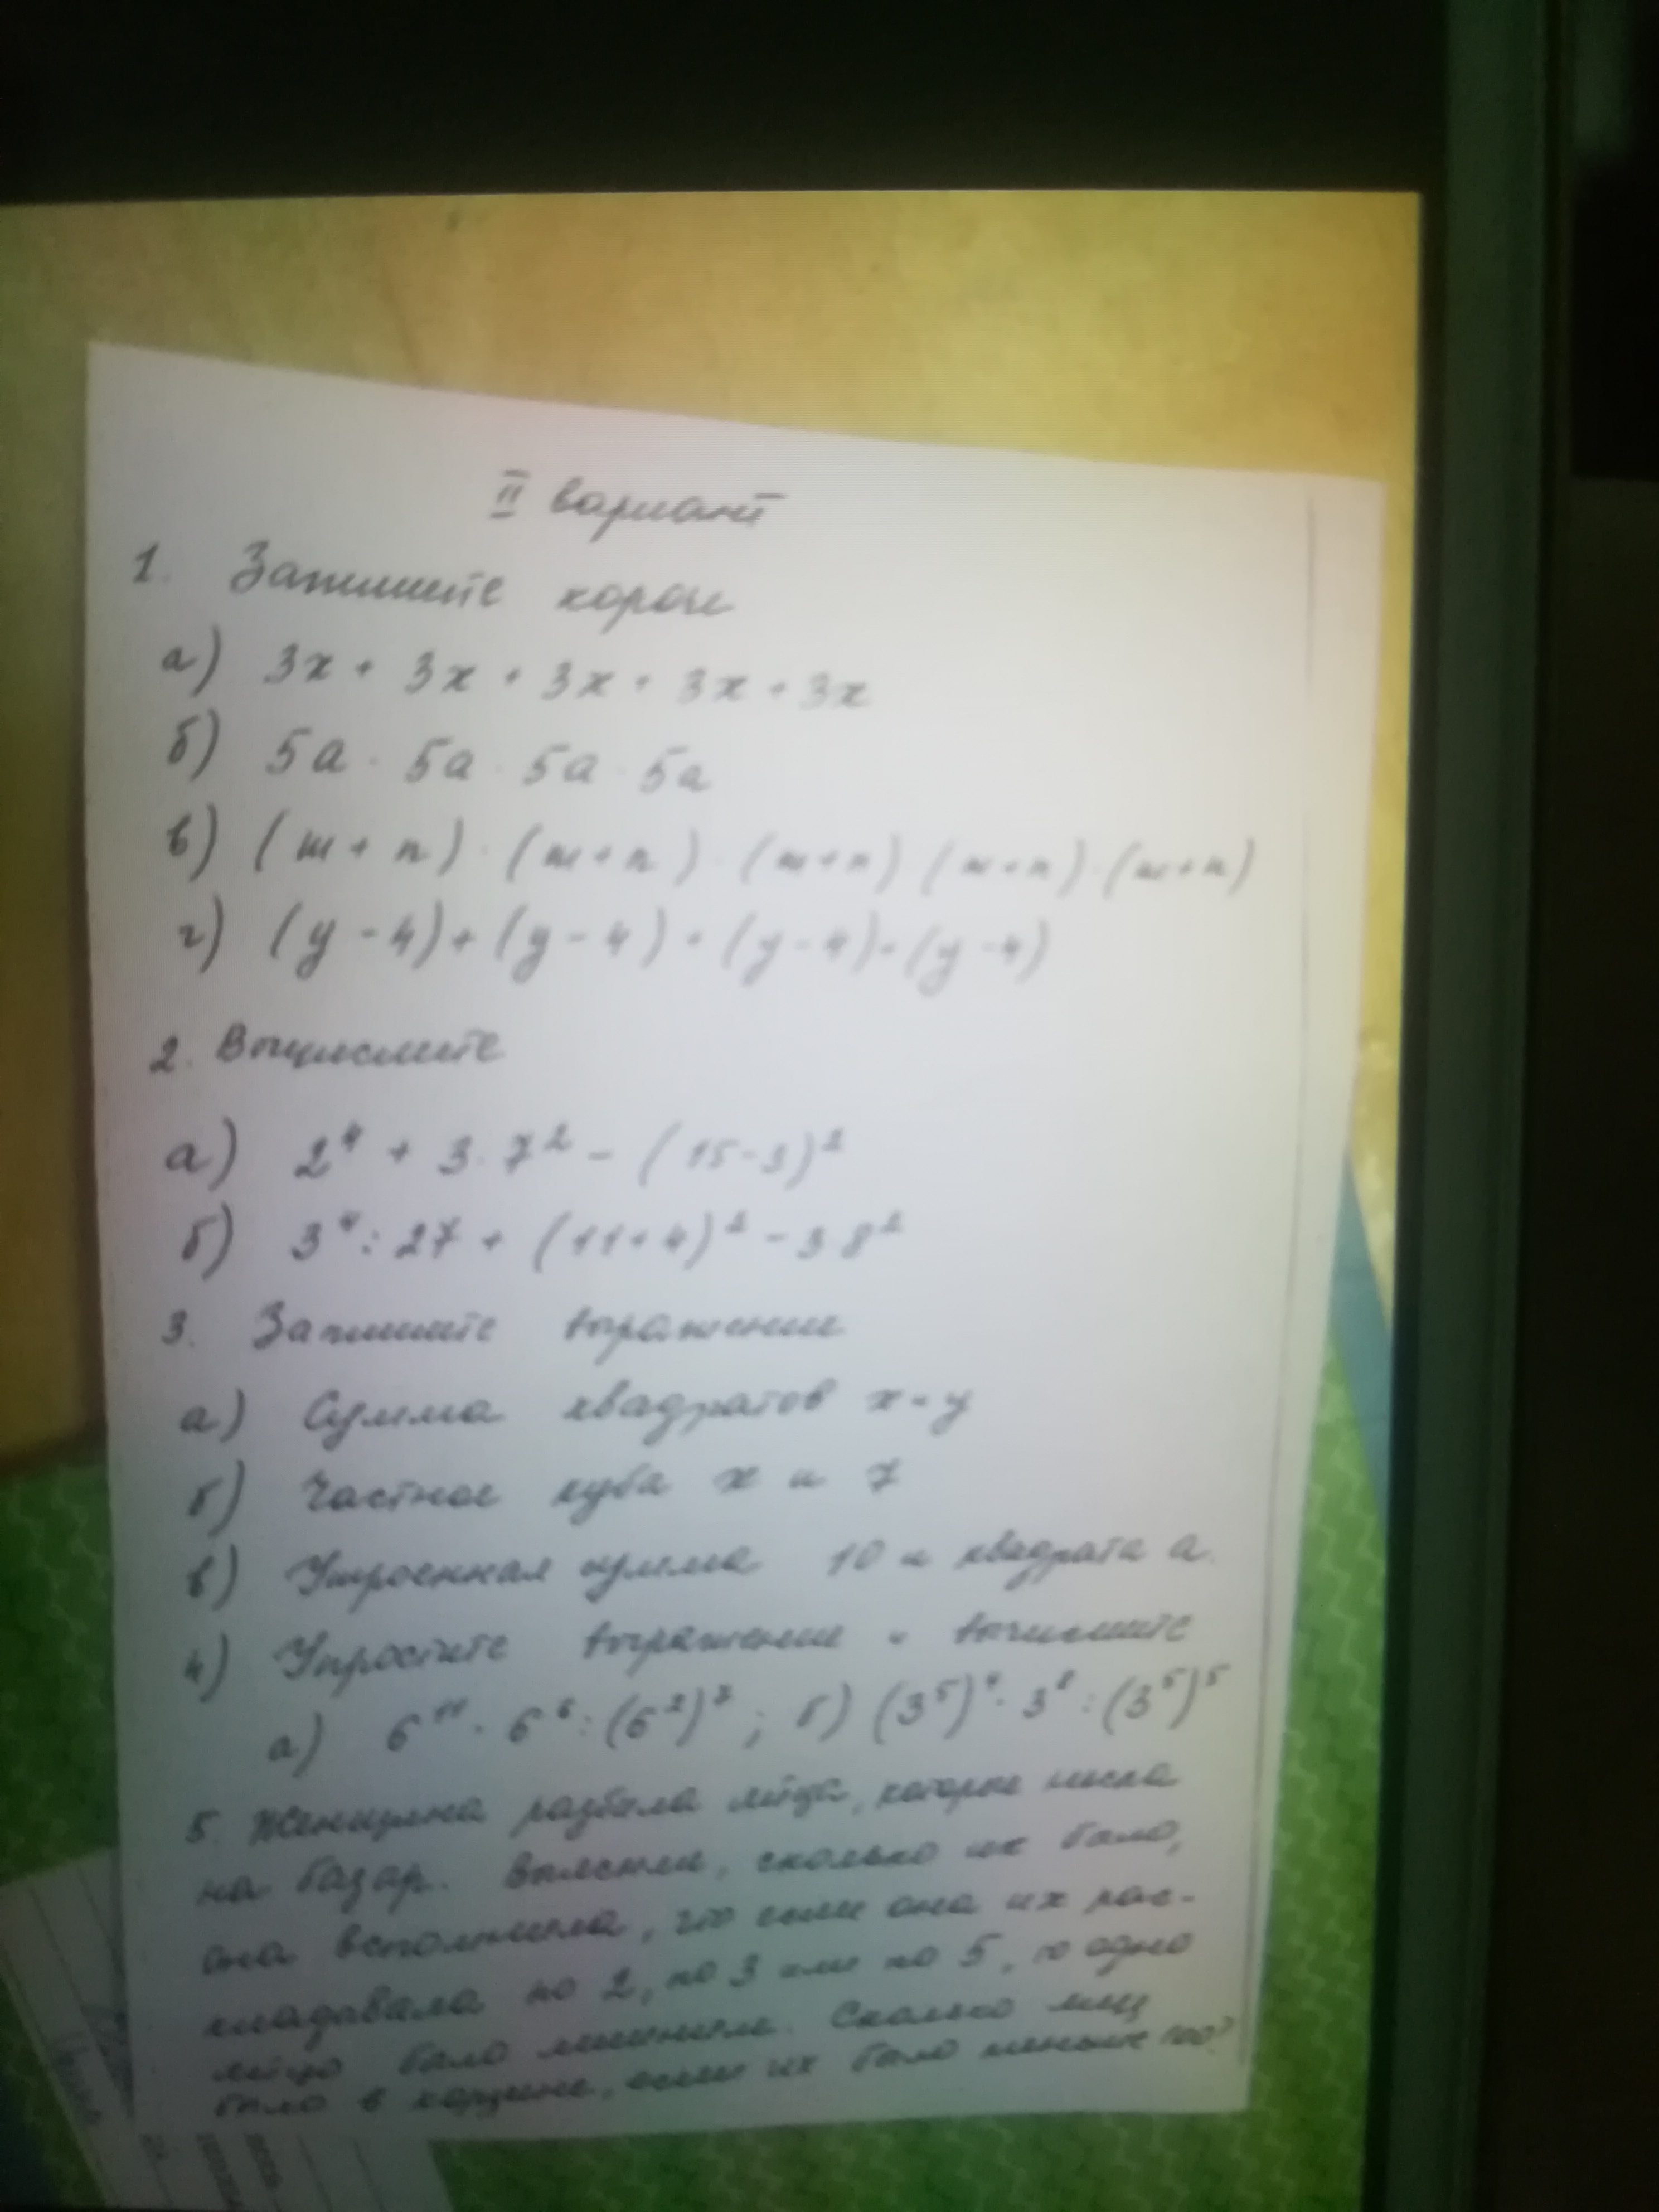 II вариант
1. Запишите короче
а) 3x + 3x + 3x + 3x + 3x
б) 5a · 5a · 5a · 5a
в) (m + n) · (m + n) · (m + n) (m + n) · (m + n)
г) (y - 4) + (y - 4) + (y - 4) + (y - 4)
2. Вычислите
а) 2⁴ + 3 · 7² - (15 - 3)²
б) 3⁴ : 27 + (11 + 4)² - 3 · 8²
3. Запишите выражение
а) Сумма квадратов x и y
б) Частное куба x и 7
в) Утроенная сумма 10 и квадрата a.
4) Упростите выражение и вычислите
а) 6¹¹ · 6⁶ : (6²)⁷ ; б) (3⁵)⁴ · 3⁸ : (3⁵)⁵
5. Женщина разбила яйца, которые несла
на базар. Выясняя, сколько их было,
она вспомнила, что если она их рас-
кладывала по 2, по 3 или по 5, то одно
яйцо было лишним. Сколько яиц
было в корзине, если их было меньше 100?